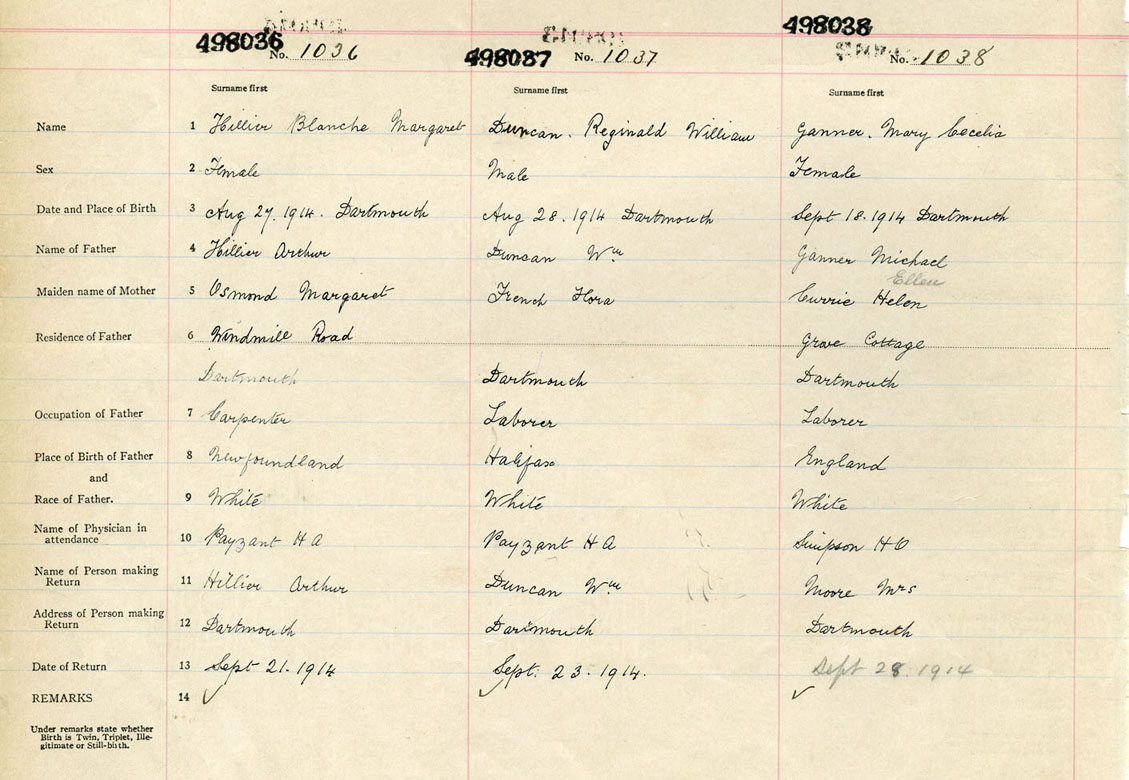 498036 No. 1036 498037 No. 1037 498038 No. 1038
Surname first Surname first Surname first
Name 1 Hillier Blanche Margaret Duncan. Reginald William Ganner. Mary Cecelia
Sex 2 Female Male Female
Date and Place of Birth 3 Aug 27. 1914. Dartmouth Aug 28. 1914 Dartmouth Sept 18. 1914 Dartmouth
Name of Father 4 Hillier Arthur Duncan Wm Ganner Michael
Ellen
Maiden name of Mother 5 Osmond Margaret French Flora Currie Helen
Residence of Father 6 Windmill Road Grove Cottage
Dartmouth Dartmouth Dartmouth
Occupation of Father 7 Carpenter Laborer Laborer
Place of Birth of Father 8 Newfoundland Halifax England
and
Race of Father. 9 White White White
Name of Physician in
attendance 10 Payzant H A Payzant H A Simpson H O
Name of Person making
Return 11 Hillier Arthur Duncan Wm Moore Mrs
Address of Person making
Return 12 Dartmouth Dartmouth Dartmouth
Date of Return 13 Sept 21. 1914 Sept. 23. 1914. Sept 28. 1914
REMARKS 14 ✓ ✓ ✓
Under remarks state whether
Birth is Twin, Triplet, Ille-
gitimate or Still-birth.